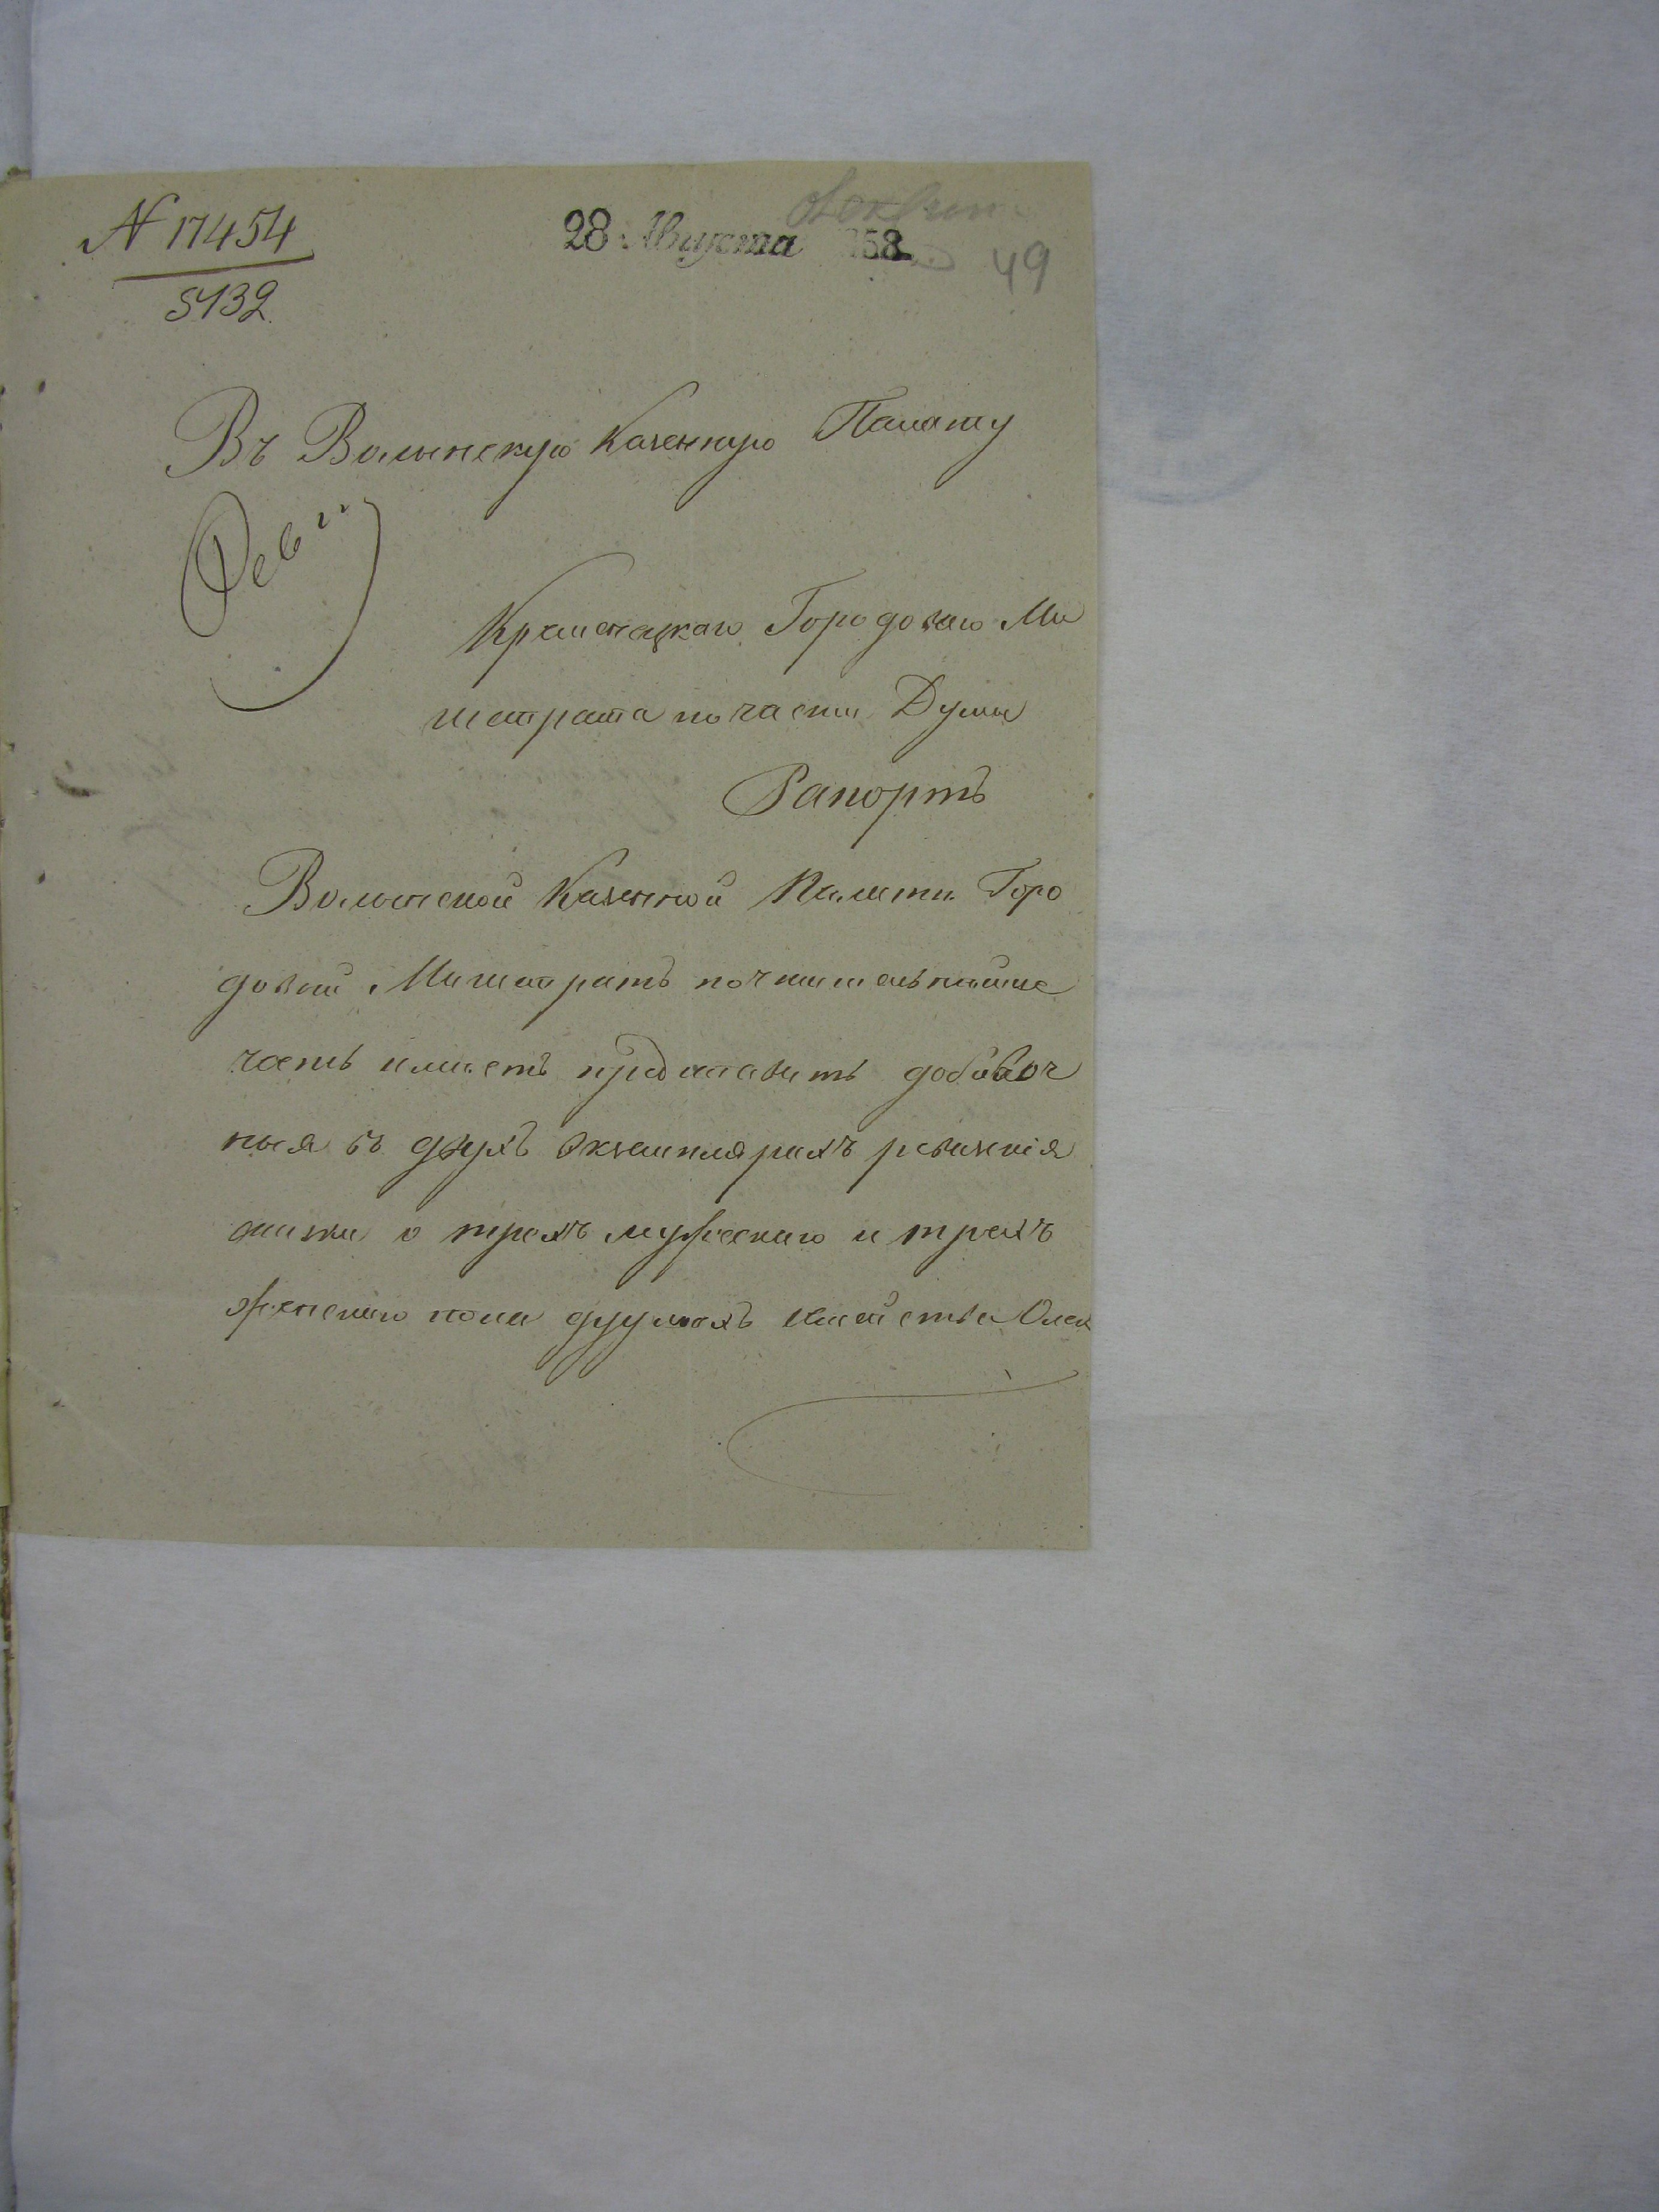 № 17454
5132
28 Августа 1858
49
Въ Волынскую Казенную Палату
Рев.
Кременецкаго Городоваго Ма
гистрата по части Думы
Рапортъ
Волынской Казенной Палаты Горо
довой Магистратъ почтительнѣйше
честь имѣетъ представить добавоч
ныя въ двухъ экземплярахъ ревизскія
сказки о трехъ мужескаго и трехъ
женскаго пола душахъ семейства